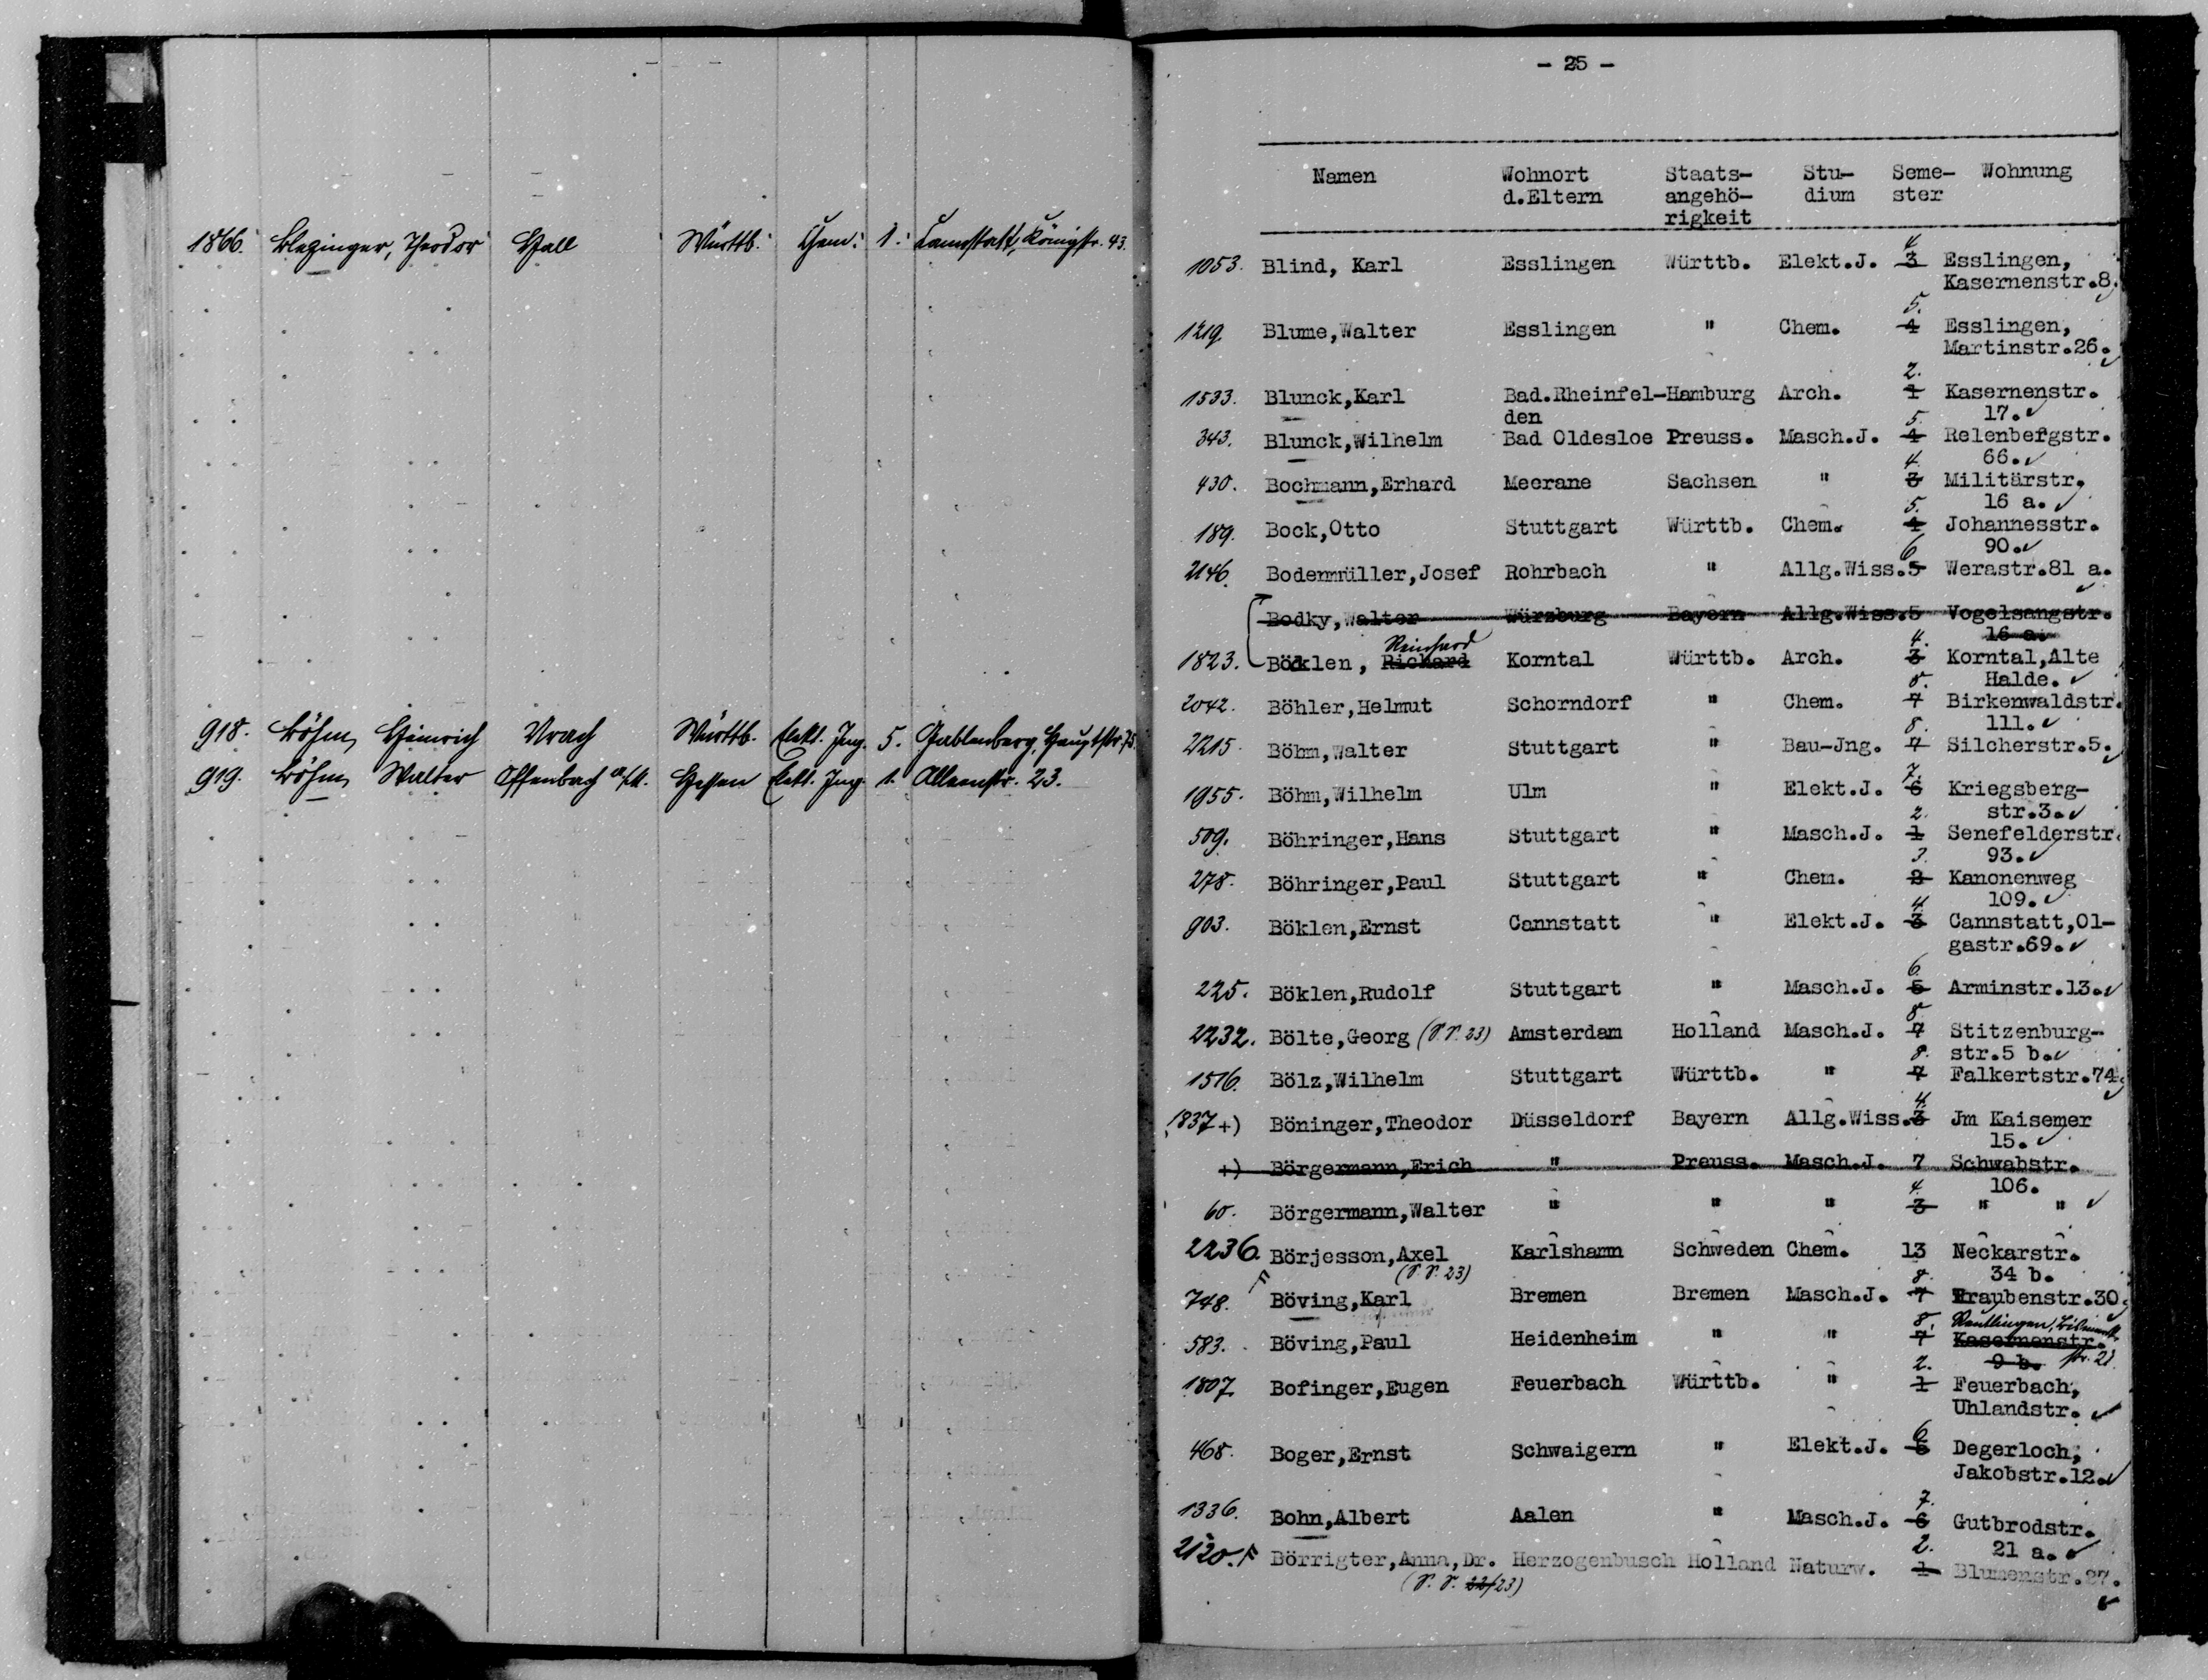 1866. Blezinger, Theodor Hall Württb. Chem. 1. Cannstatt, Königstr. 43.
918. Böhm, Heinrich Urach Württb. Elekt. Ing. 5. Gablenberg, Hauptstr. 75.
919. Böhm, Walter Offenbach a/M. Hessen Elekt. Ing. 1. Alleenstr. 23.
- 25 -
Namen Wohnort Staats- Stu- Seme- Wohnung
d.Eltern angehö- dium ster
rigkeit
4.
1053. Blind, Karl Esslingen Württb. Elekt.J. 3 Esslingen,
Kasernenstr.8.
5.
1219. Blume,Walter Esslingen " Chem. 4 Esslingen,
Martinstr.26.
2.
1533. Blunck,Karl Bad.Rheinfel-Hamburg Arch. 1 Kasernenstr.
den 5. 17.
343. Blunck,Wilhelm Bad Oldesloe Preuss. Masch.J. 4 Relenbergstr.
4. 66.
430. Bochmann,Erhard Meerane Sachsen " 3 Militärstr.
5. 16 a.
189. Bock,Otto Stuttgart Württb. Chem. 4 Johannesstr.
6 90.
2146. Bodenmüller,Josef Rohrbach " Allg.Wiss.5 Werastr.81 a.
Bodky,Walter Würzburg Bayern Allg.Wiss.5 Vogelsangstr.
Reinhard 4. 16 a.
1823. Böcklen, Richard Korntal Württb. Arch. 3 Korntal,Alte
8. Halde.
2042. Böhler,Helmut Schorndorf " Chem. 7 Birkenwaldstr.
8. 111.
2215. Böhm,Walter Stuttgart " Bau-Jng. 7 Silcherstr.5.
7.
1955. Böhm,Wilhelm Ulm " Elekt.J. 6 Kriegsberg-
2. str.3.
509. Böhringer,Hans Stuttgart " Masch.J. 1 Senefelderstr.
3. 93.
278. Böhringer,Paul Stuttgart " Chem. 2 Kanonenweg
4. 109.
903. Böklen,Ernst Cannstatt " Elekt.J. 3 Cannstatt,Ol-
gastr.69.
6.
225. Böklen,Rudolf Stuttgart " Masch.J. 5 Arminstr.13.
8
2232. Bölte,Georg (S.S. 23) Amsterdam Holland Masch.J. 7 Stitzenburg-
8. str.5 b.
1516. Bölz,Wilhelm Stuttgart Württb. " 7 Falkertstr.74.
4.
1837 +) Böninger,Theodor Düsseldorf Bayern Allg.Wiss.3 Jm Kaisemer
15.
+) Börgermann,Erich " Preuss. Masch.J. 7 Schwabstr.
4. 106.
60. Börgermann,Walter " " " 3 " "
2236. Börjesson,Axel Karlshamn Schweden Chem. 13 Neckarstr.
(S.S. 23) 8. 34 b.
748. F Böving,Karl Bremen Bremen Masch.J. 7 Traubenstr.30.
8. Reutlingen, Bismarck-
583. Böving,Paul Heidenheim " " 7 Kasernenstr.
2. 9 b. str. 21.
1807. Bofinger,Eugen Feuerbach Württb. " 1 Feuerbach,
Uhlandstr.
6
468. Boger,Ernst Schwaigern " Elekt.J. 5 Degerloch,
Jakobstr.12.
7.
1336. Bohn,Albert Aalen " Masch.J. 6 Gutbrodstr.
2. 21 a.
2120. F Börrigter,Anna,Dr. Herzogenbusch Holland Naturw. 1 Blumenstr.27.
(S.S. 22/23)